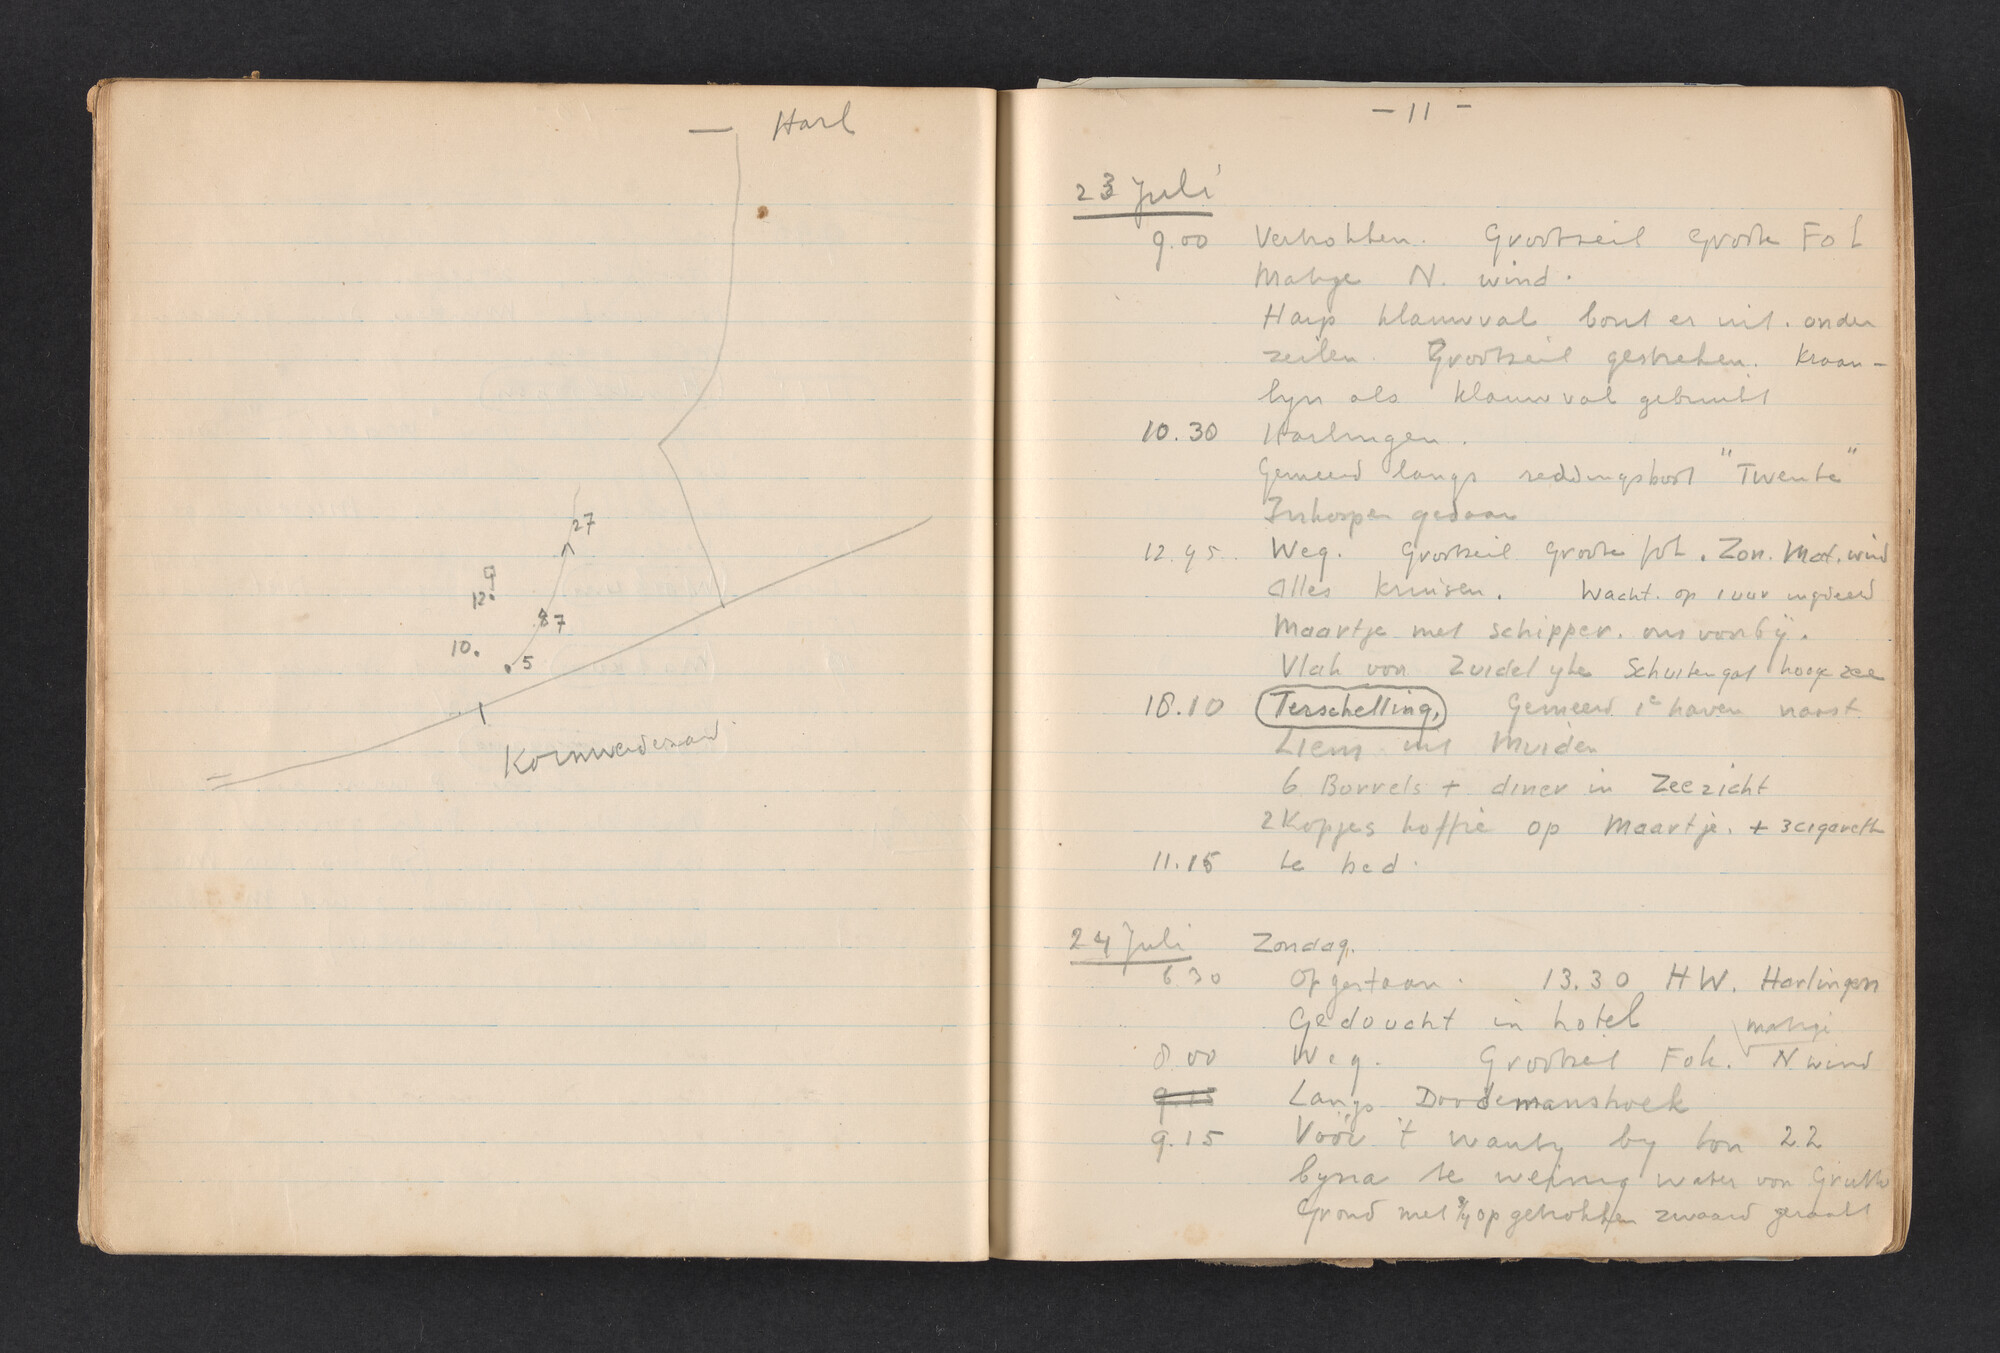 — Harl
27
9
12.
87
10.
5
Kornwerderzand
— 11 —
23 Juli
9.00 Vertrokken. Grootzeil Groote Fok
Matige N. wind.
Harp klauwval bout er uit. onder
zeilen. Grootzeil gestreken. Kraan-
lyn als klauwval gebruikt
10.30 Harlingen.
Gemeerd langs reddingsboot "Twente"
Inkoopen gedaan
12.45. Weg. Grootzeil Groote fok. Zon. Mat. wind
Alles kruisen. Wacht. op 1 uur
Maartje met schipper. ons voorbÿ.
Vlak van Zuidelyke Schuitengat hooge zee
18.10 Terschelling, Gemeerd 1e haven naast
Liens uit Muiden
6 Borrels + diner in Zeezicht
2 Kopjes koffie op Maartje. + 3 cigarett
11.15 te bed.
24 Juli Zondag.
6 30 Opgestaan. 13.30 HW. Harlingen
Gedoucht in hotel
matige
8.00 Weg. Grootzeil Fok. N wind
9.15 Langs Doodemanshoek
9.15 Vóór 't wantÿ by ton 22
byna te weinig water van
Grond met 3/4 opgetrokken zwaard geraakt